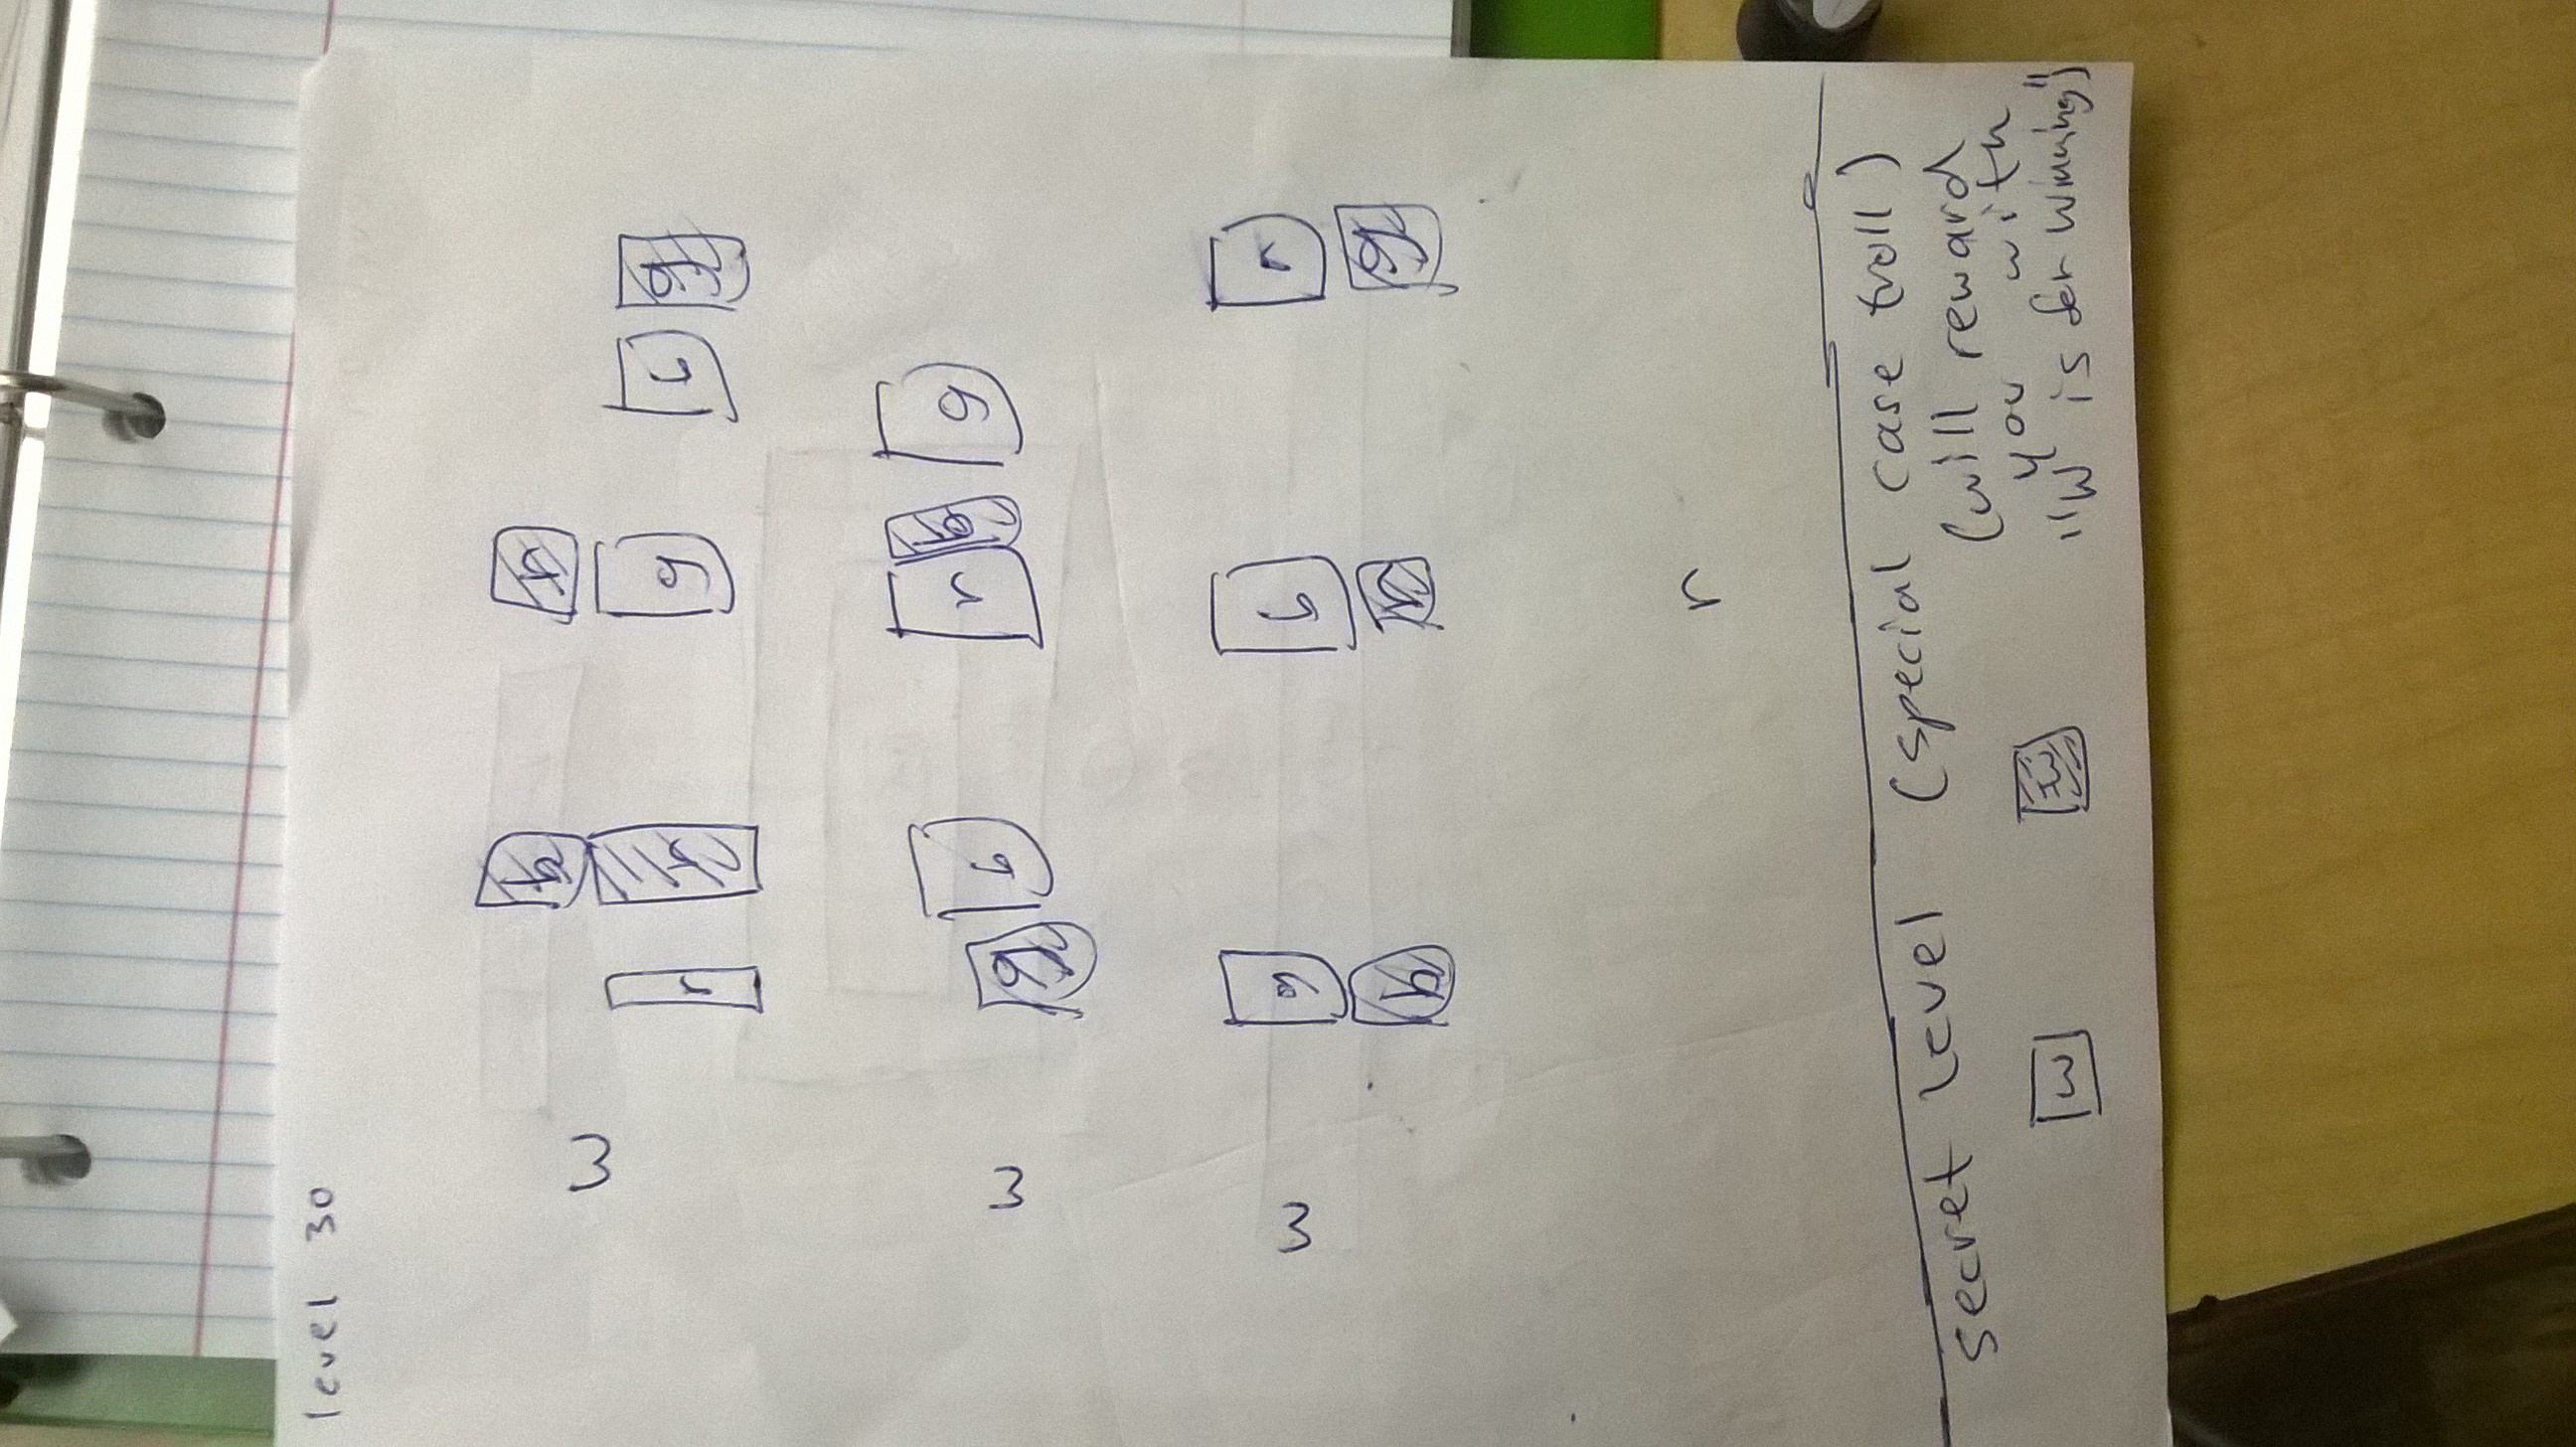 level 30
b r
w r r g b g
w g b r b g
w g b r
b r g
r
secret level (special case troll)
(will reward
you with
w w "W is for winning")